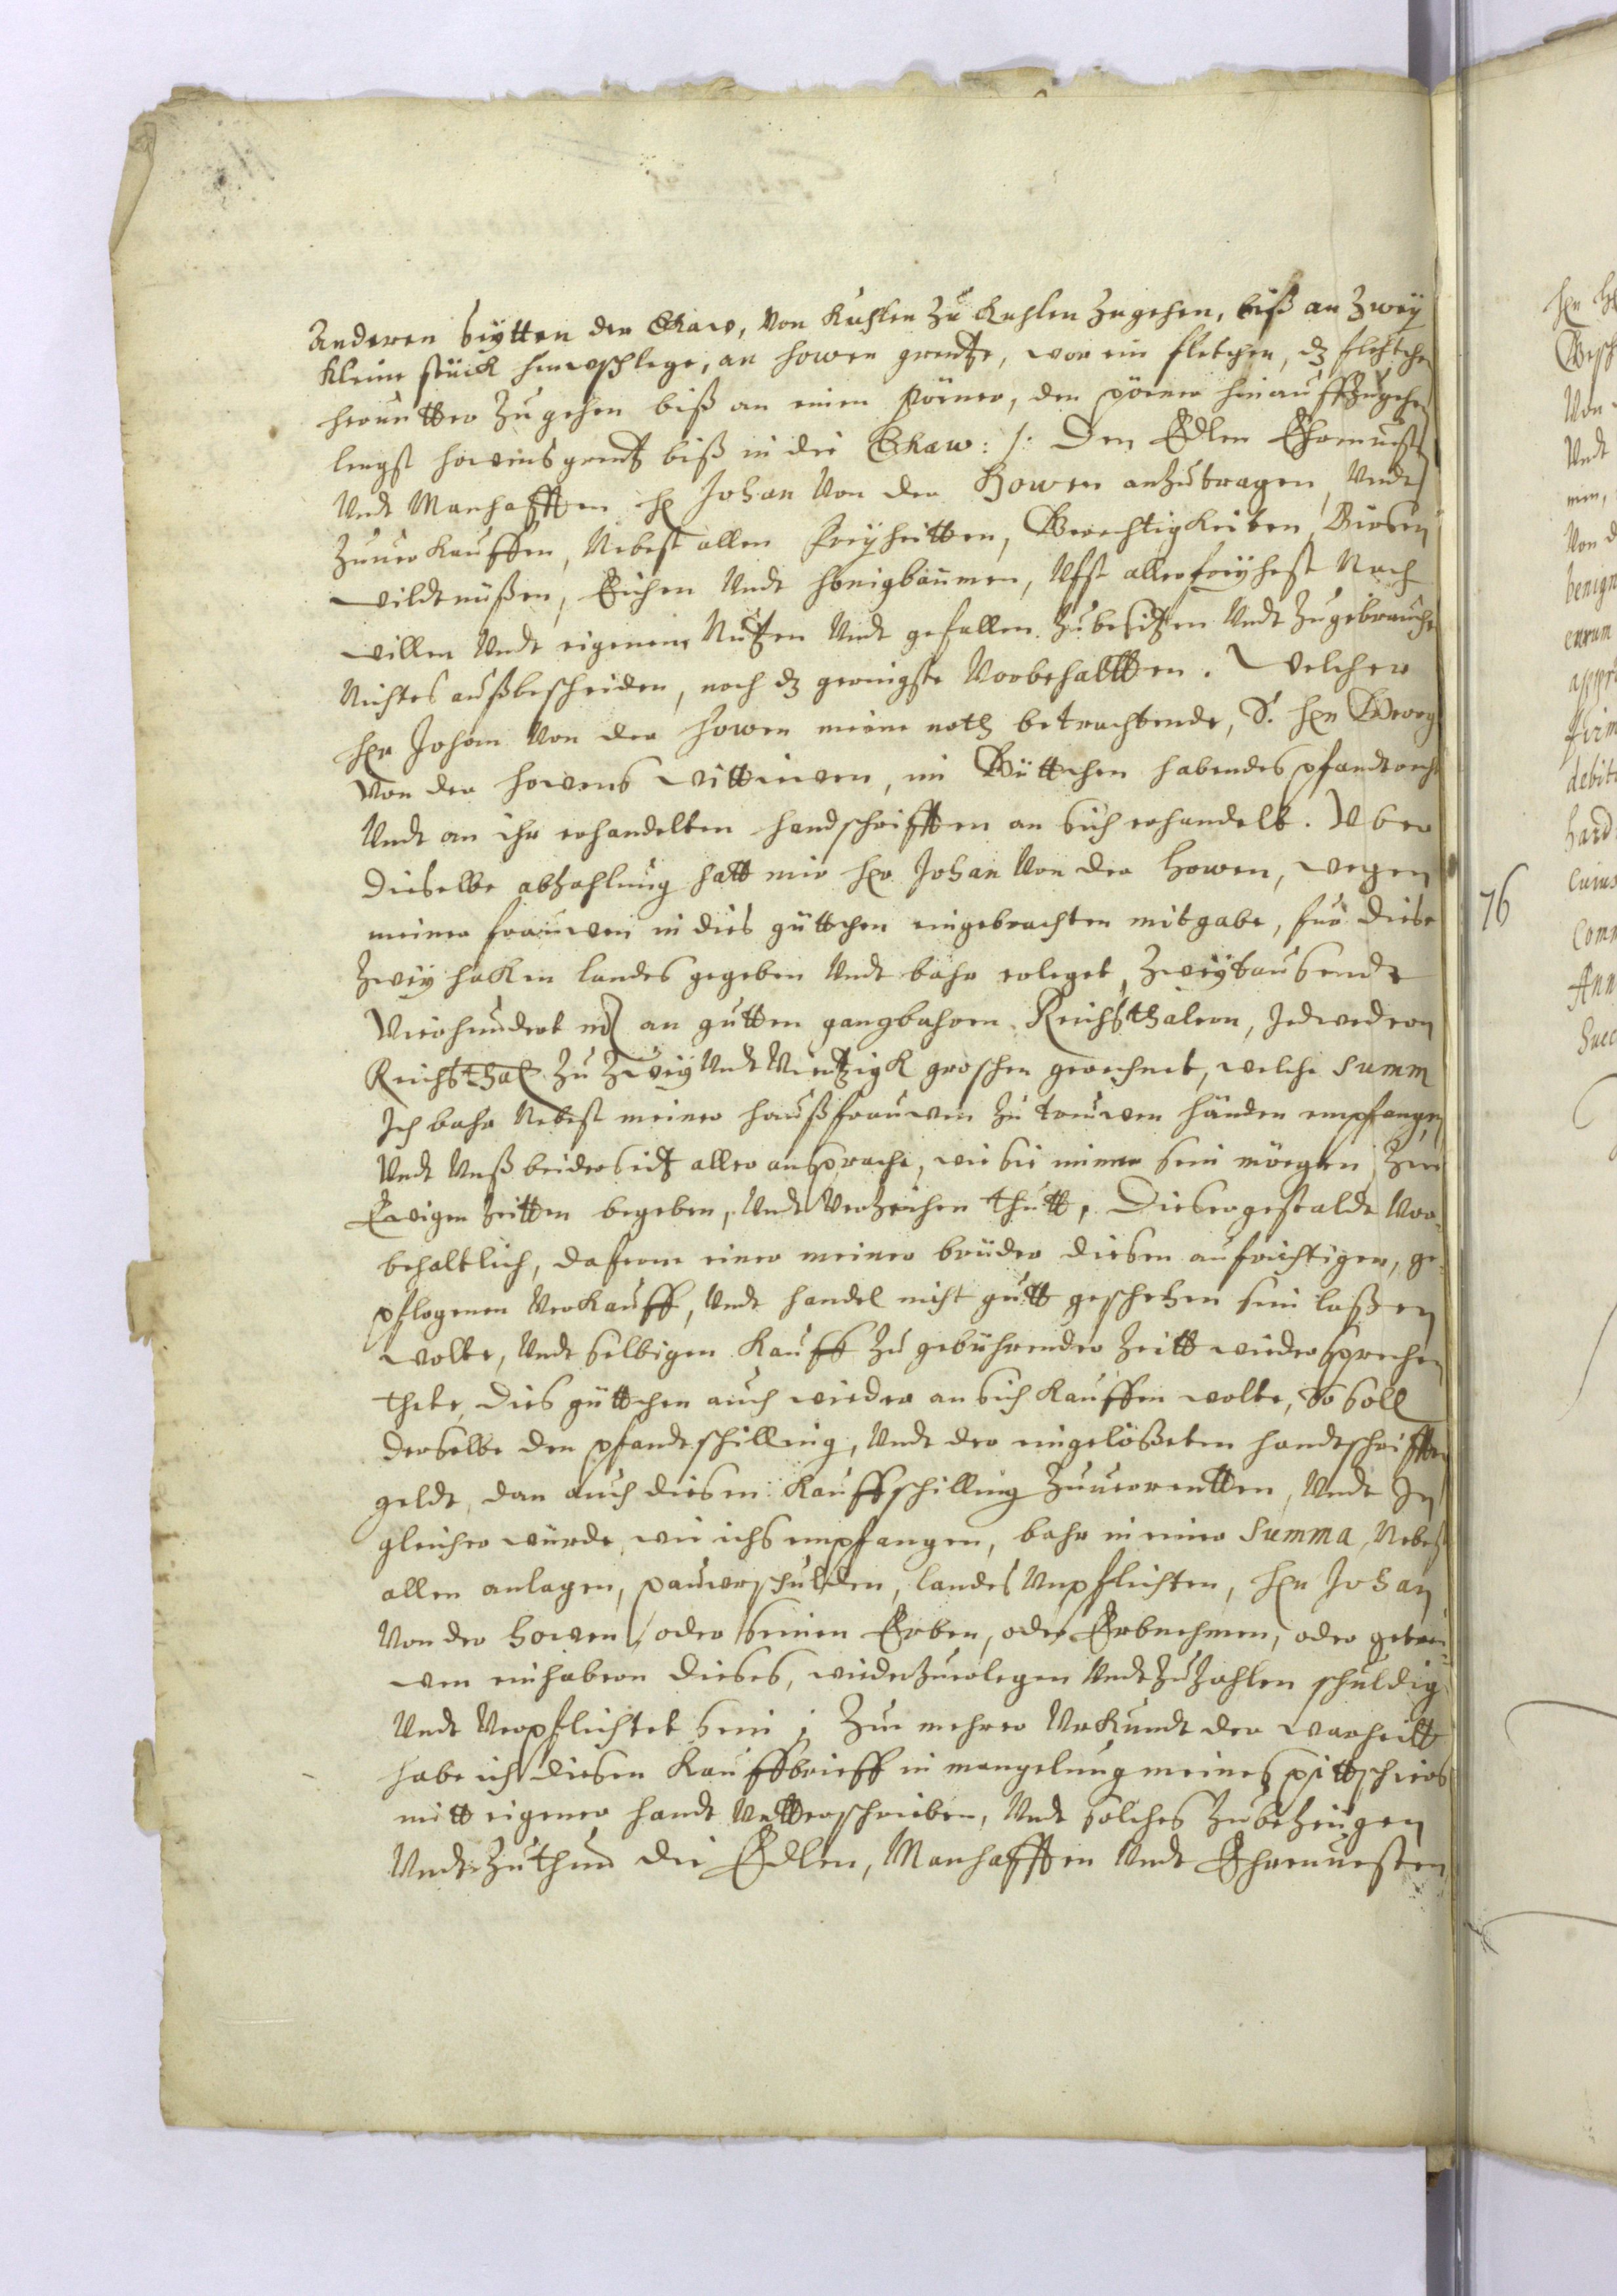 Anderen seytten der Ekaw, von Kuhlen zu Kuhlen zugehen, biß an zwey
kleine stück heuwschlege, an Howen grentze, vor ein fletchen, dz fletchen
herunter zu gehen biß an einen pörner, den pörner hinauff zugehen
lengst Howens grentz biß in die Ekaw: /: Den Edlen Ehrnuest
Undt Manhafften H Johan Von der Howen anzutragen, Undt
zuuerkauffen, Nebest allen freyheitten, Gerechtigkeiten, Birsen
wildtnüßen, Eichen Undt honigbäumen, Ufs aller freyhest Nach
willen Undt eigenem Nutzen Undt gefallen zubesitzen Undt zugebrauchen
Nichtes außbescheiden, noch dz geringste Vorbehaltten. Welcher
Her Johan Von der Howen meine noth betrachtende, S. Hen Georg
Von der Howens wittiwen, im Güttchen habendes pfandtrecht
Undt an ihr erhandelten handschrifften an sich erhandelt. Uber
dieselbe abzahlung hatt mir Her Johan Von der Howen, wegen
meiner frauwen in dies güttchen eingebrachten mitgabe, für diese
zwey haken landes gegeben Undt bahr erleget, zweytausendt
Vierhundert mk an gutten gangbahren Reichsthalern, Jedwedern
Reichsthal zu zwey Undt Viertzigk groschen gerechnet, welche Summ
Ich bahr Nebest meiner haußfrauwen zu treuwen händen empfangen
Undt Unß beiderseitz aller ansprache, wie sie immer sein mögen, zu
Ewigen zeitten begeben, Undt Verzeihen thutt, Dieser gestaldt Vor-
behaltlich, dafern einer meiner brüder diesen aufrichtigen, ge-
pflogenen Verkauff, Undt handel nicht gutt geschehen sein laßen
wolte, Undt selbigen Kauff zu gebührender zeitt wiedersprechen
thete, dies güttchen auch wieder an sich kauffen wolte, So soll
derselbe den pfandtschilling, Undt der eingelößeten handtschrifften
geldt, dan auch diesen Kauffschilling zuuerrentten, Undt In
gleicher würde, wie ichs empfangen, bahr in einer Summa, Nebest
allen anlagen, pauwrschulden, landes Unpflichten, Hen Johan
Von der Howen, oder seinen Erben, oder Erbnehmen, oder getreu-
wen einhabern dieses, wiederzuerlegen Undt zuzahlen schuldig
Undt Verpflichtet sein; Zu mehrer Urkundt der warheitt
habe ich diesen Kauffbrieff in mangelung meines pittschiers
mitt eigener handt Untterschrieben, Undt solches zubezeugen
Undt zuthun die Edlen, Manhafften Undt Ehrnuesten
76